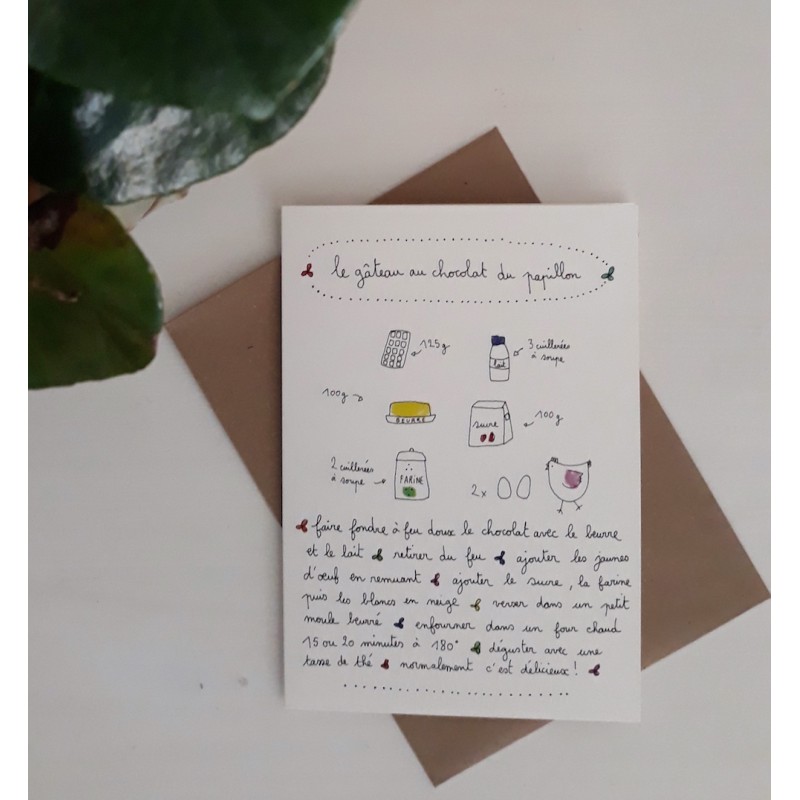 le gâteau au chocolat du papillon
125g
3 cuillerées
à soupe
lait
100g
BEURRE
sucre
100g
2 cuillerées
à soupe
FARINE
2x
faire fondre à feu doux le chocolat avec le beurre
et le lait retirer du feu ajouter les jaunes
d'œuf en remuant ajouter le sucre, la farine
puis les blancs en neige verser dans un petit
moule beurré enfourner dans un four chaud
15 ou 20 minutes à 180° déguster avec une
tasse de thé normalement c'est délicieux !